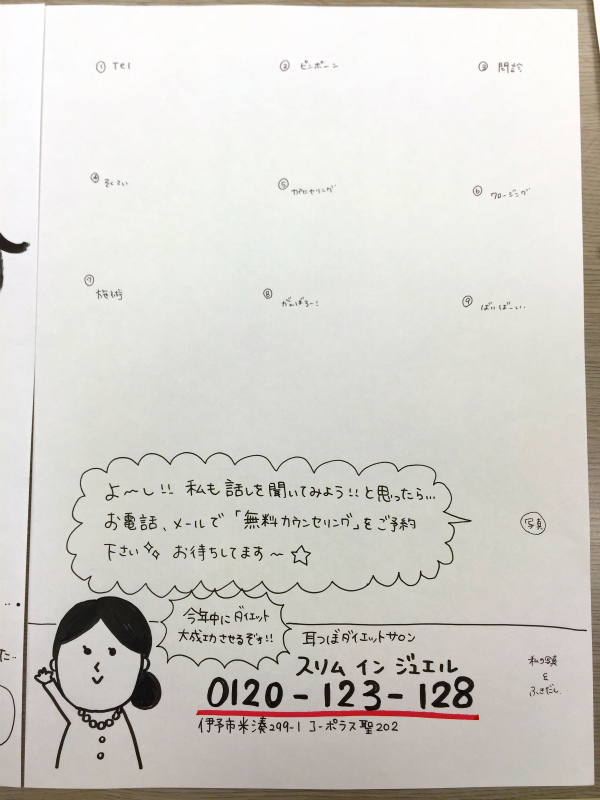 ① Tel
② ピンポーン
③ 問診
④ そくてい
⑤ カウンセリング
⑥ クロージング
⑦ 施術
⑧ がんばるー!
⑨ ばいばーい
よ〜し!! 私も話しを聞いてみよう!!と思ったら...
お電話、メールで「無料カウンセリング」をご予約
下さい✨ お待ちしてます〜☆
写真
今年中にダイエット
大成功させるぞォ!!
耳つぼダイエットサロン
スリム イン ジュエル
0120-123-128
伊予市米湊299-1 コーポラス聖202
私の写真
&
ふきだし